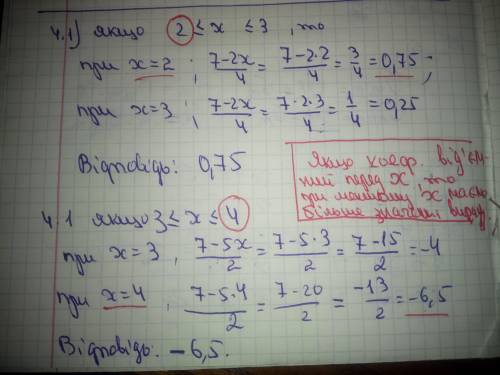 4.1) якщо 2 ≤ x ≤ 3, то
при x=2 ; (7-2x)/4 = (7-2·2)/4 = 3/4 = 0,75 ;
при x=3 ; (7-2x)/4 = (7·2·3)/4 = 1/4 = 0,25
Відповідь: 0,75
Якщо коеф. від'єм-
ний перед X, то
при меншому X маємо
більше значення виразу
4.1 якщо 3 ≤ x ≤ 4
при x=3, (7-5x)/2 = (7-5·3)/2 = (7-15)/2 = -4
при x=4, (7-5·4)/2 = (7-20)/2 = -13/2 = -6,5
Відповідь: -6,5.